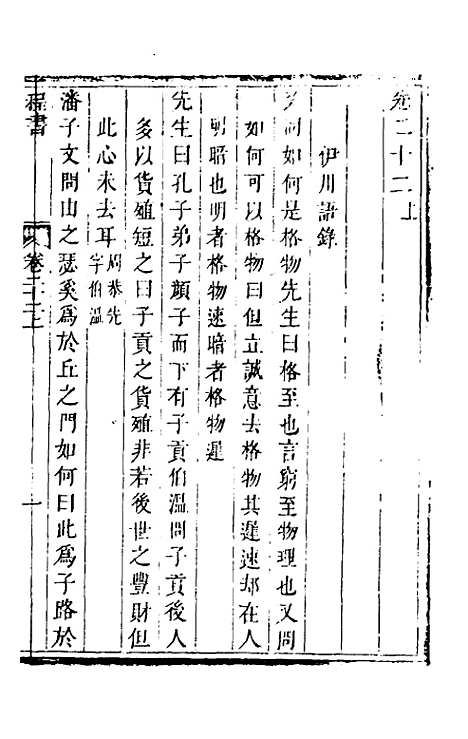 卷二十二上
伊川語錄
又問如何是格物先生曰格至也言窮至物理也又問
如何可以格物曰但立誠意去格物其遲速却在人
明暗也明者格物速暗者格物遲
先生曰孔子弟子顔子而下有子貢伯溫問子貢後人
多以貨殖短之曰子貢之貨殖非若後世之豐財但
此心未去耳周恭先字伯溫
潘子文問由之瑟奚爲於丘之門如何曰此爲子路於
程書
卷二十二上
一